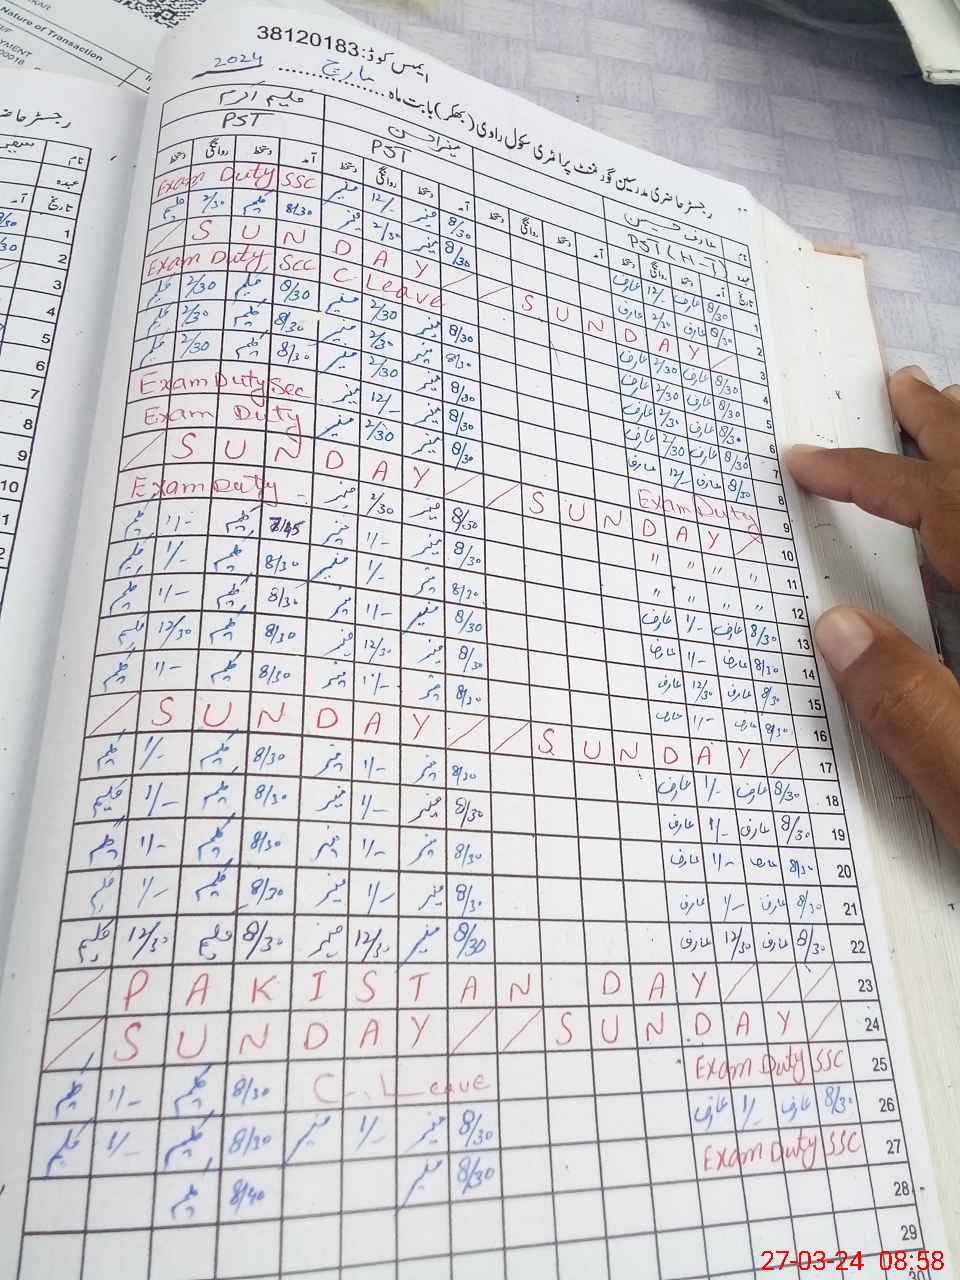 Nature of Transaction
ایمس کوڈ:38120183
رجسٹر حاضری مدرسین گورنمنٹ پرائمری سکول راوی (بھکر) بابت ماہ ........ مارچ 2024
نام عارف حسین کلیم اکرم
عہدہ PST (H-T) PST PST
تاریخ آمد دستخط روانگی دستخط آمد دستخط روانگی دستخط آمد دستخط روانگی دستخط آمد دستخط روانگی دستخط
1 8/30 عارف 12/- عارف 8/30 منیر 12/- منیر Exam Duty SSC
2 8/30 عارف 2/30 عارف 8/30 منیر 2/30 منیر 8/30 کلیم 2/30 کلیم
/ S U N D A Y / / S U N D A Y / 3
4 8/30 عارف 2/30 عارف C Leave Exam Duty SCC
5 8/30 عارف 2/30 عارف 8/30 منیر 2/30 منیر 8/30 کلیم 2/30 کلیم
6 8/30 عارف 2/30 عارف 8/30 منیر 2/30 منیر 8/30 کلیم 2/30 کلیم
7 8/30 عارف 2/30 عارف 8/30 منیر 2/30 منیر 8/30 کلیم 2/30 کلیم
8 8/30 عارف 12/- عارف 8/30 منیر 12/- منیر Exam Duty Sec
9 Exam Duty 8/30 منیر 2/30 منیر Exam Duty
/ S U N D A Y / / S U N D A Y / 10
11 " " " " 8/30 منیر 2/30 منیر Exam Duty
12 " " " " 8/30 منیر 1/- منیر 7/45 کلیم 1/- کلیم
13 8/30 عارف 1/- عارف 8/30 منیر 1/- منیر 8/30 کلیم 1/- کلیم
14 8/30 عارف 1/- عارف 8/30 منیر 1/- منیر 8/30 کلیم 1/- کلیم
15 8/30 عارف 12/30 عارف 8/30 منیر 12/30 منیر 8/30 کلیم 12/30 کلیم
16 8/30 عارف 1/- عارف 8/30 منیر 1/- منیر 8/30 کلیم 1/- کلیم
/ S U N D A Y / / S U N D A Y / 17
18 8/30 عارف 1/- عارف 8/30 منیر 1/- منیر 8/30 کلیم 1/- کلیم
19 8/30 عارف 1/- عارف 8/30 منیر 1/- منیر 8/30 کلیم 1/- کلیم
20 8/30 عارف 1/- عارف 8/30 منیر 1/- منیر 8/30 کلیم 1/- کلیم
21 8/30 عارف 1/- عارف 8/30 منیر 1/- منیر 8/30 کلیم 1/- کلیم
22 8/30 عارف 12/30 عارف 8/30 منیر 12/30 منیر 8/30 کلیم 12/30 کلیم
/ P A K I S T A N D A Y / / / 23
/ S U N D A Y / / S U N D A Y / 24
25 Exam Duty SSC C. Leave 8/30 کلیم 1/- کلیم
26 8/30 عارف 1/- عارف 8/30 منیر 1/- منیر 8/30 کلیم 1/- کلیم
27 Exam Duty SSC 8/30 منیر 8/40 کلیم
28
29
30
رجسٹر حاضری
نام
عہدہ
تاریخ آمد
1
2
3
4
5
6
7
8
9
10
27-03-24 08:58